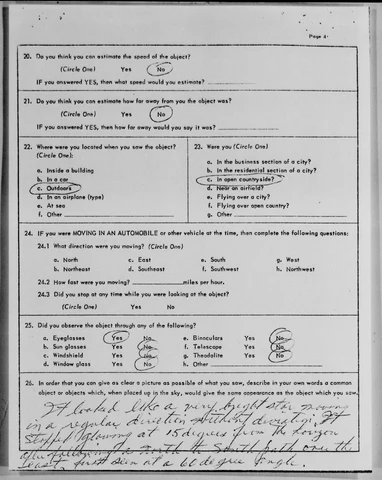 Page 4
20. Do you think you can estimate the speed of the object?
(Circle One) Yes No
IF you answered YES, then what speed would you estimate?
21. Do you think you can estimate how far away from you the object was?
(Circle One) Yes No
IF you answered YES, then how far away would you say it was?
22. Where were you located when you saw the object?
(Circle One):
a. Inside a building
b. In a car
c. Outdoors
d. In an airplane (type)
e. At sea
f. Other
23. Were you (Circle One)
a. In the business section of a city?
b. In the residential section of a city?
c. In open countryside?
d. Near an airfield?
e. Flying over a city?
f. Flying over open country?
g. Other
24. IF you were MOVING IN AN AUTOMOBILE or other vehicle at the time, then complete the following questions:
24.1 What direction were you moving? (Circle One)
a. North c. East e. South g. West
b. Northeast d. Southeast f. Southwest h. Northwest
24.2 How fast were you moving? miles per hour.
24.3 Did you stop at any time while you were looking at the object?
(Circle One) Yes No
25. Did you observe the object through any of the following?
a. Eyeglasses Yes No e. Binoculars Yes No
b. Sun glasses Yes No f. Telescope Yes No
c. Windshield Yes No g. Theodolite Yes No
d. Window glass Yes No h. Other
26. In order that you can give as clear a picture as possible of what you saw, describe in your own words a common
object or objects which, when placed up in the sky, would give the same appearance as the object which you saw.
It looked like a very bright star moving
in a regular direction without deviating. It
stopped glowing at 15 degrees from the horizon
after following a north to South path over the
east, first seen at a 60 degree angle.